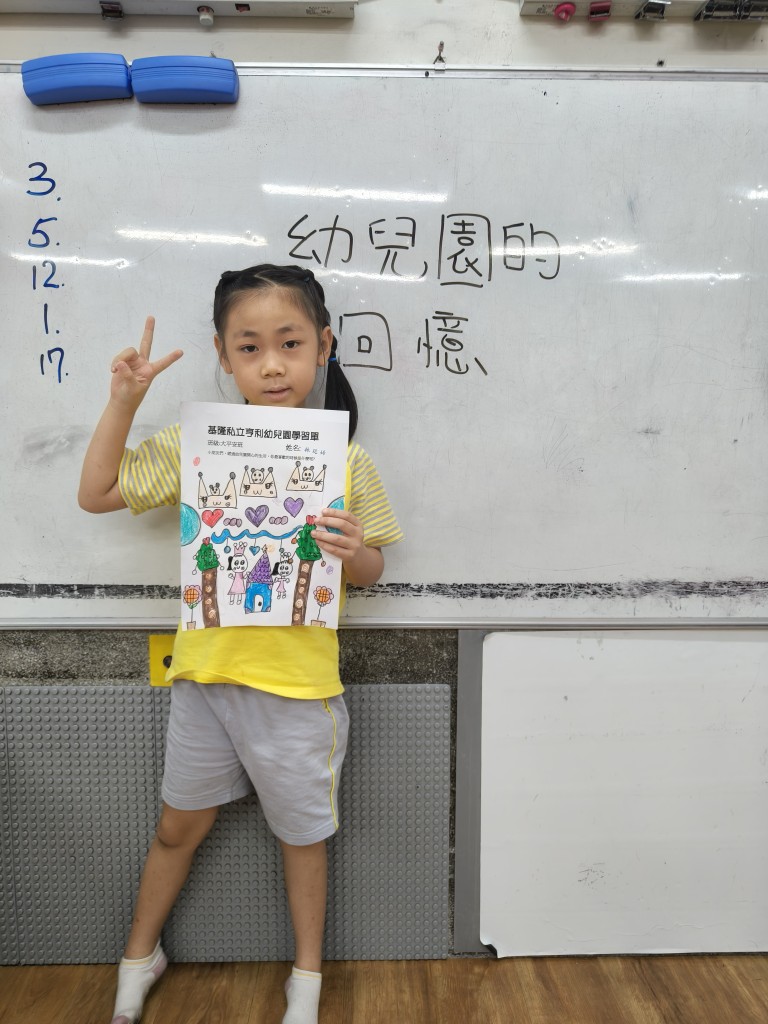 幼兒園的
回憶
3.
5.
12.
1.
17.
基隆私立亨利幼兒園學習單
班級:大平安班
姓名: